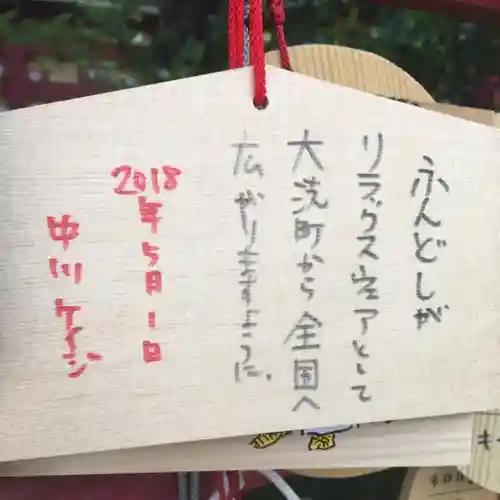 ふんどしが
リラックスウェアとして
大洗町から全国へ
広がりますように、
2018年5月1日
中川ケイジ